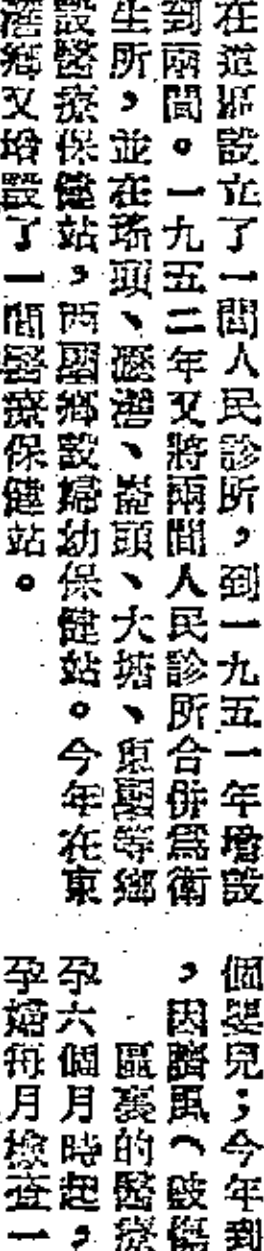 在道區設立了一間人民診所，到一九五一年增設
到兩間。一九五二年又將兩間人民診所合併爲衛
生所，並在瑤頭、瀝滘、崙頭、大塘、東圍等鄉
設醫療保健站，西圍鄉設婦幼保健站。今年在東
滘鄉又增設了一間醫療保健站。
個嬰兒；今年到
，因臍風（破傷
區裏的醫療
孕六個月時起，
孕婦每月檢查一